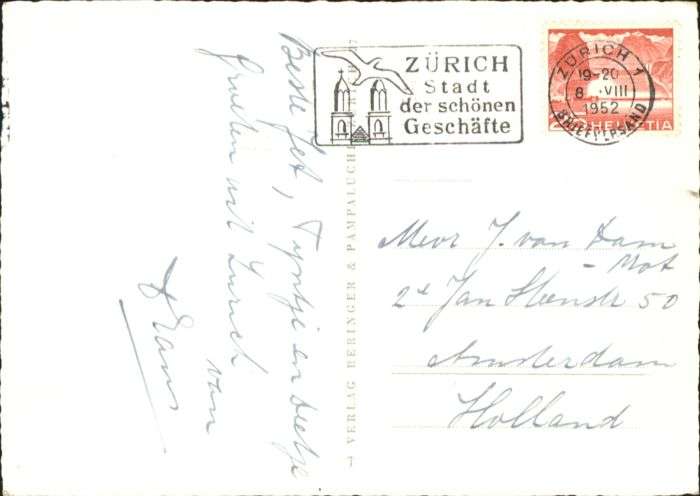 Beste Jet, Tyntje en Dietje
Groeten uit Zurich
van
Frans
7 VERLAG BERINGER & PAMPALUCHI
ZÜRICH
Stadt
der schönen
Geschäfte
ZÜRICH 1
19-20
8. VIII
1952
BRIEFVERSAND
HELVETIA
Mevr J. van Dam
- Mot
2e Jan Steenstr 50
Amsterdam
Holland